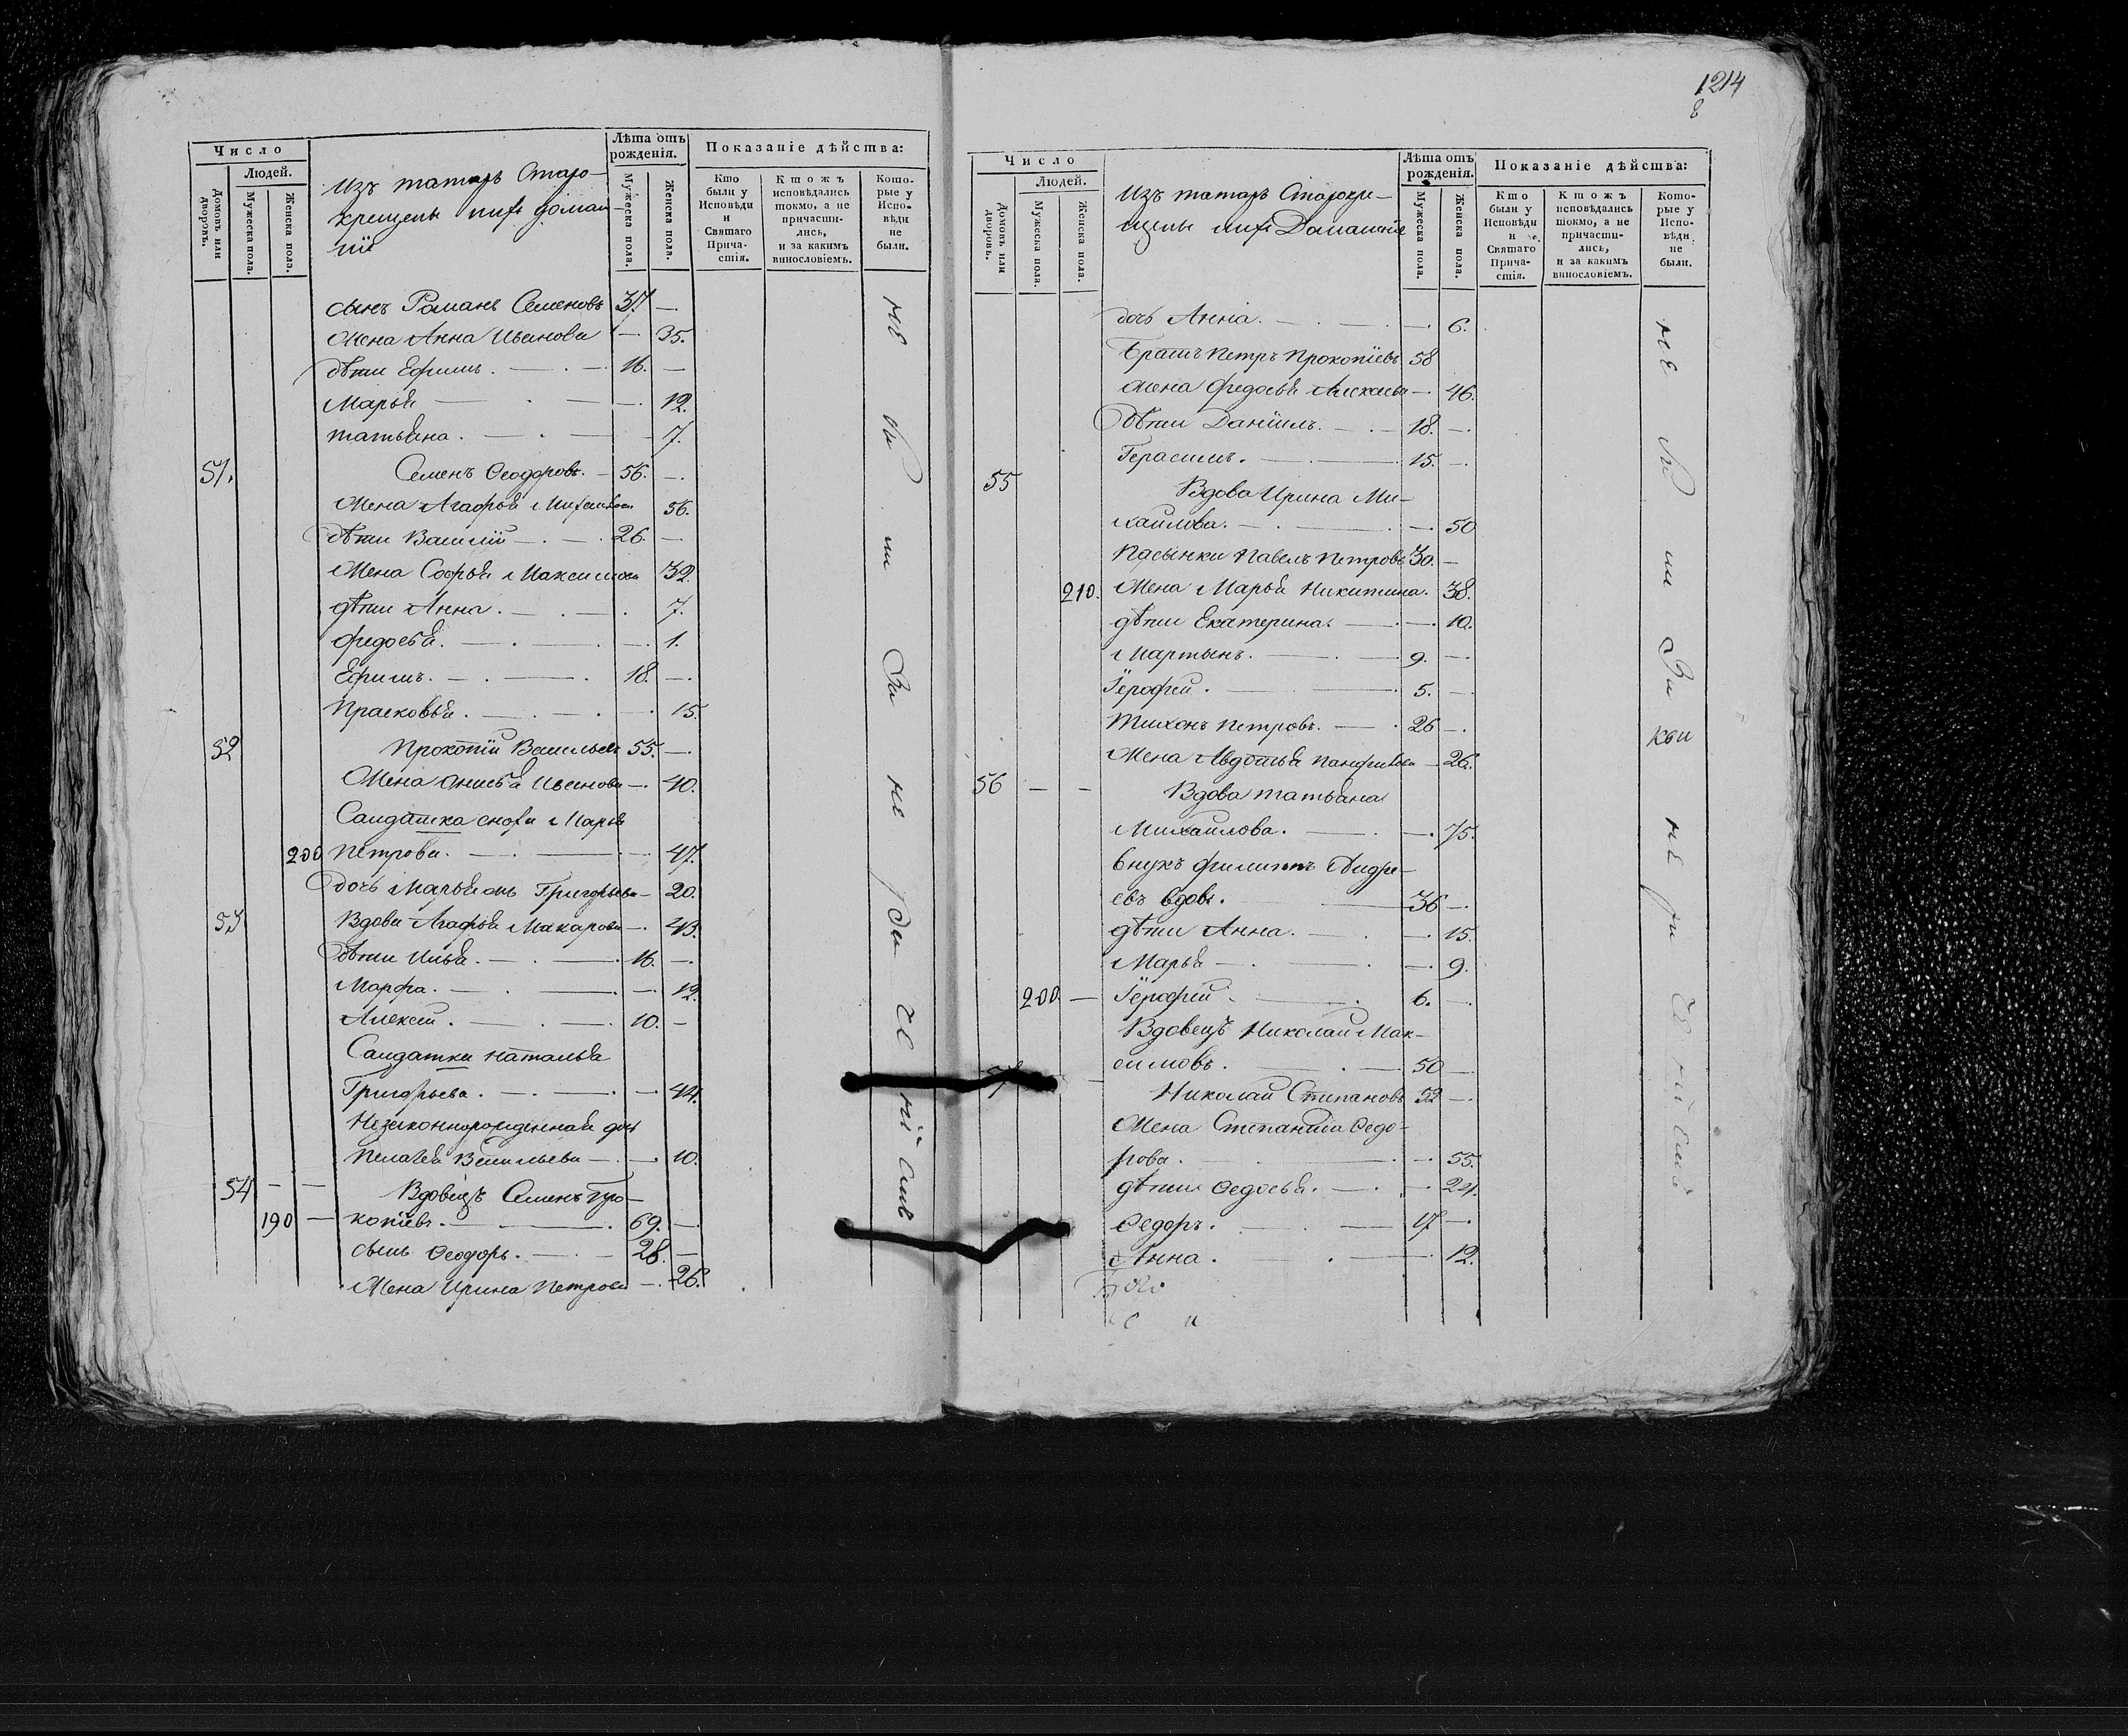 1214
8
Число
Людей.
Домовъ или дворовъ.
Мужеска пола.
Женска пола.
Изъ татаръ Старо-
крещены ихъ домаш-
нiи
Лѣта отъ рожденiя.
Мужеска пола.
Женска пола.
Показанiе дѣйства:
Кто были у Исповѣди и Святаго Прича-стiя.
Ктожъ исповѣдались токмо, а не причасти-лись, и за какимъ винословiемъ.
Кото-рые у Испо-вѣди не были.
сынъ Романъ Семеновъ 37 —
Жена Анна Иванова — 35.
дѣти Ефимъ. — 16. —
Марья — 12.
татьяна. — 7.
51. Семенъ Ѳеодоровъ. — 56. —
Жена Агафья Михаилова 56.
дѣти Василiй — 26. —
Жена Софья Максимова 32.
дѣти Анна. — 7.
федосья. — 1.
Ефимъ. — 18. —
Прасковья. — 15.
52 Прокопiй Васильевъ 55. —
Жена Анисья Иванова — 40.
Салдатка сноха Марья
200 Петрова. — 47.
дочь Марья Григорьева — 20.
53 Вдова Агафья Макарова — 43.
дѣти Илья. — 16. —
Марфа. — 12.
Алексей. — 10. —
Салдатка Наталья
Григорьева. — 44.
Незаконнорожденная дочь
Пелагея Васильева — 10.
54 — — Вдовецъ Семенъ Про-
190 — копiевъ. — 69. —
сынъ Ѳеодоръ. — 28. —
Жена Ирина Петрова — 26.
Число
Людей.
Домовъ или дворовъ.
Мужеска пола.
Женска пола.
Изъ татаръ Старокре-
щены ихъ Домашнiе
Лѣта отъ рожденiя.
Мужеска пола.
Женска пола.
Показанiе дѣйства:
Кто были у Исповѣди и Святаго Прича-стiя.
Ктожъ исповѣдались токмо, а не причасти-лись, и за какимъ винословiемъ.
Кото-рые у Испо-вѣди не были.
дочь Анна. — 6.
Братъ Петръ Прокопiевъ 58
жена Федосья — 46.
дѣти Данiилъ. — 18. —
Герасимъ. — 15. —
55 Вдова Ирина Ми-
хайлова. — 50
Пасынки Павелъ Петровъ 30. —
210. Жена Марья Никитина. 38.
дѣти Екатерина. — 10.
Мартынъ. — 9. —
Iерофей. — 5. —
Тихонъ Петровъ. — 26 —
Жена Авдотья Панфилова — 26.
56 — — Вдова татьяна
Михайлова. — 75.
Внукъ филипъ Андре-
евъ вдовъ. — 36 —
дѣти Анна. — 15.
Марья — 9.
200. — Iерофей — 6. —
Вдовецъ Николай Мак-
симовъ. — 50 —
Николай Степановъ 52 —
Жена Степанида Ѳедо-
рова. — 55.
дѣти Ѳедосья. — 24.
Ѳедоръ. — 17 —
Анна. — 12.